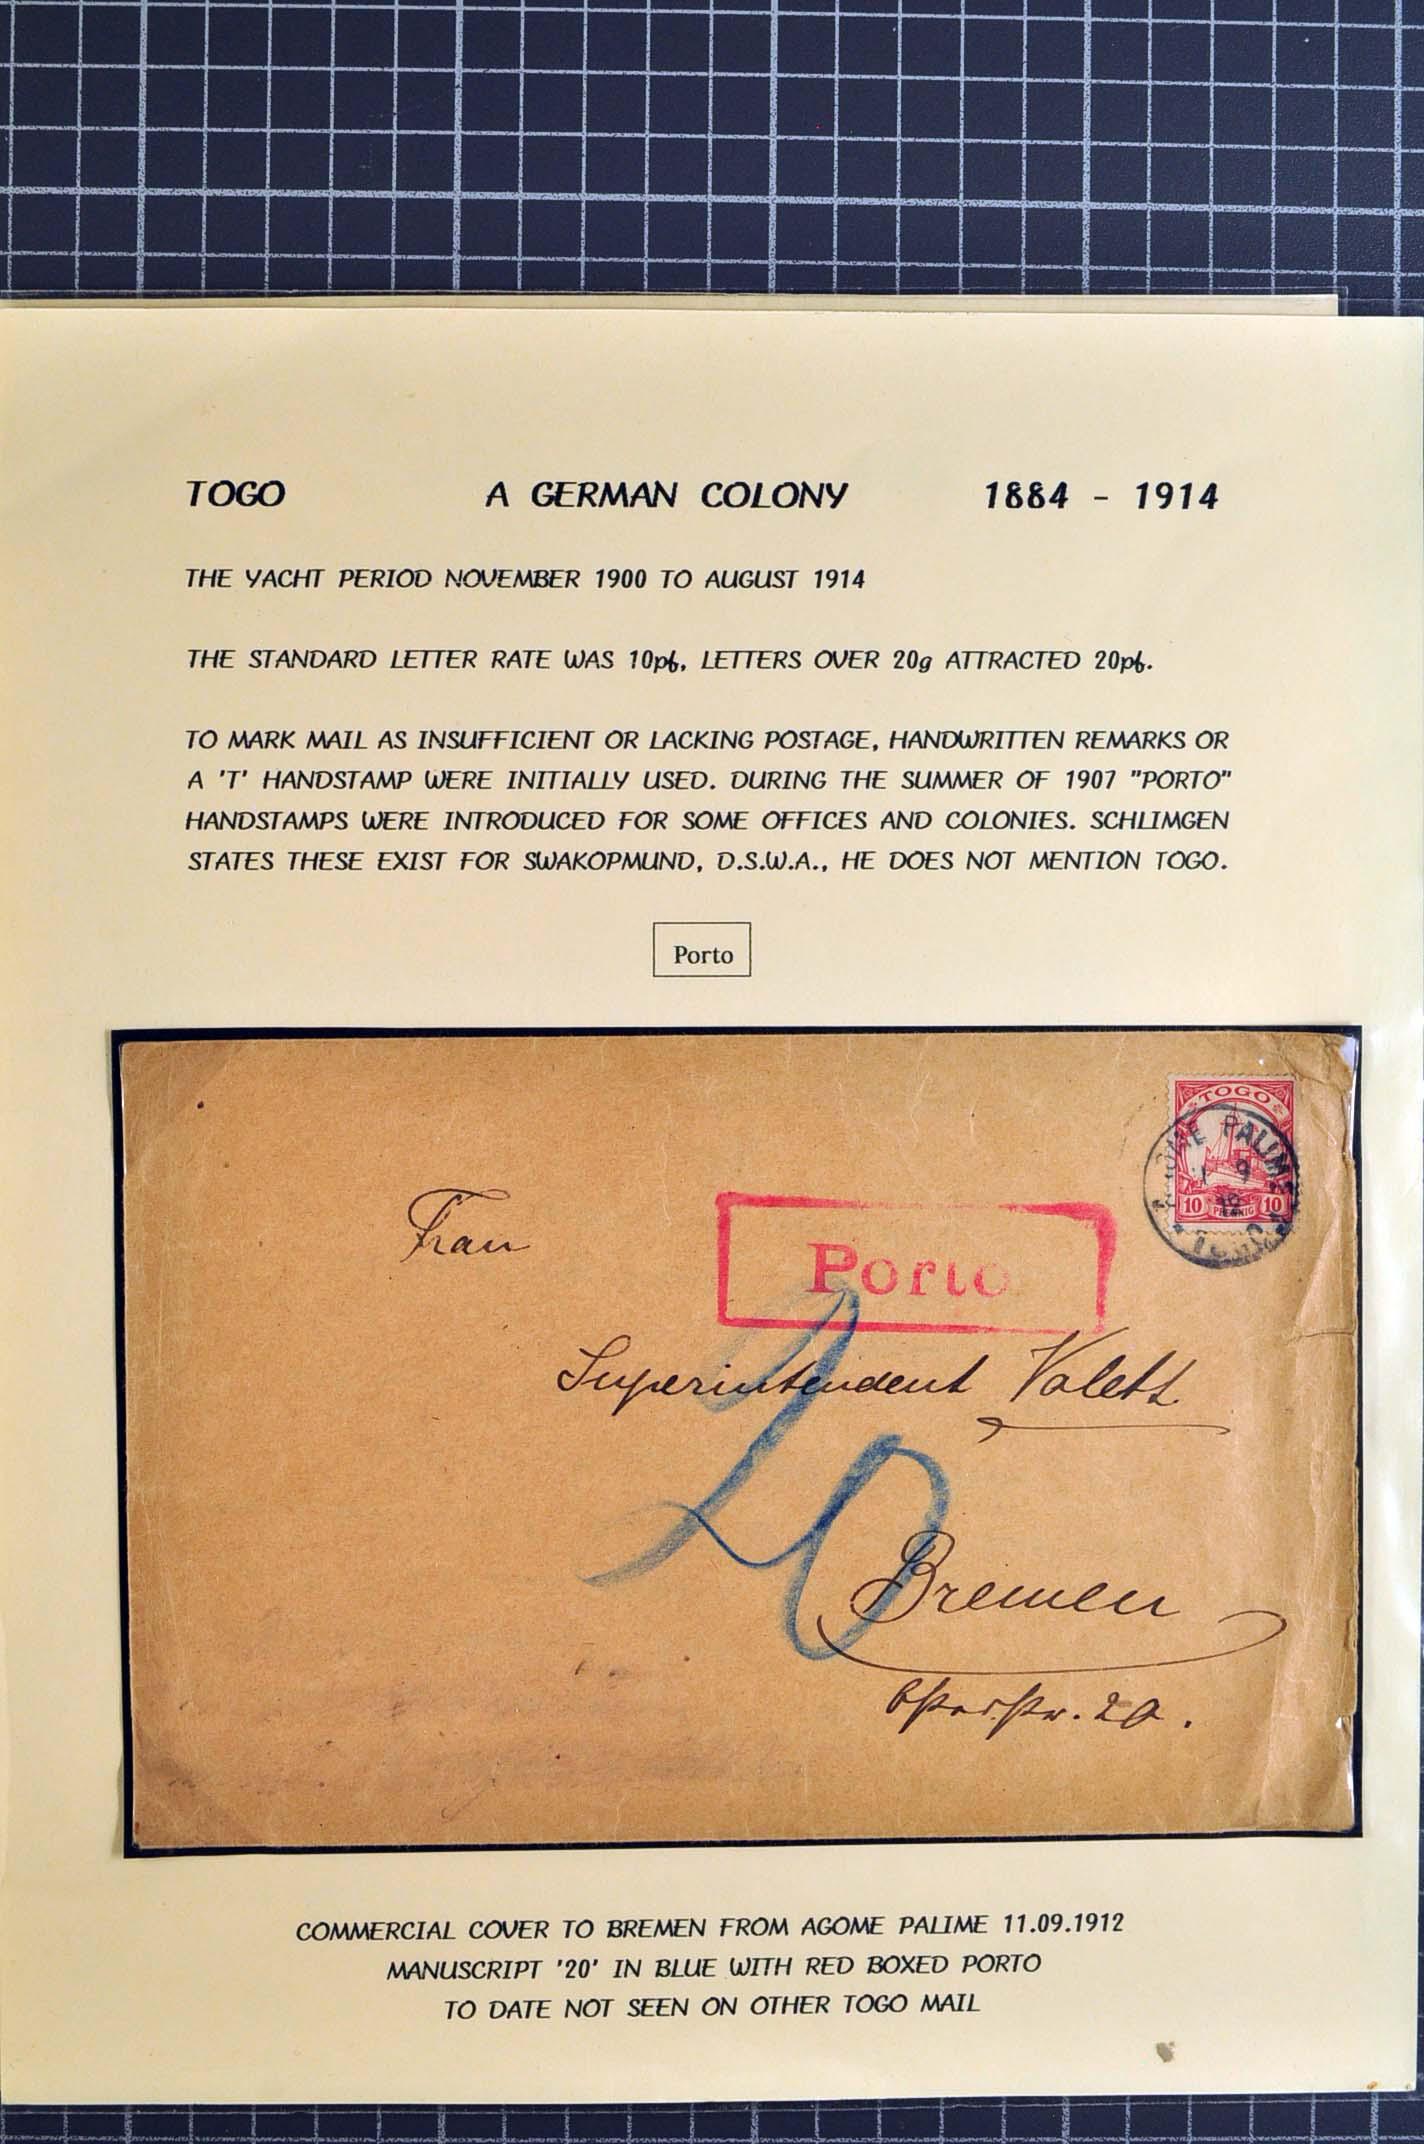 TOGO A GERMAN COLONY 1884 - 1914
THE YACHT PERIOD NOVEMBER 1900 TO AUGUST 1914
THE STANDARD LETTER RATE WAS 10pf, LETTERS OVER 20g ATTRACTED 20pf.
TO MARK MAIL AS INSUFFICIENT OR LACKING POSTAGE, HANDWRITTEN REMARKS OR
A 'T' HANDSTAMP WERE INITIALLY USED. DURING THE SUMMER OF 1907 "PORTO"
HANDSTAMPS WERE INTRODUCED FOR SOME OFFICES AND COLONIES. SCHLIMGEN
STATES THESE EXIST FOR SWAKOPMUND, D.S.W.A., HE DOES NOT MENTION TOGO.
Porto
TOGO
AGOME PALIME
9
12
10 PFENNIG 10
TOGO
Frau
Porto
Superintendent Valett
20
Bremen
Osterstr. 20.
COMMERCIAL COVER TO BREMEN FROM AGOME PALIME 11.09.1912
MANUSCRIPT '20' IN BLUE WITH RED BOXED PORTO
TO DATE NOT SEEN ON OTHER TOGO MAIL